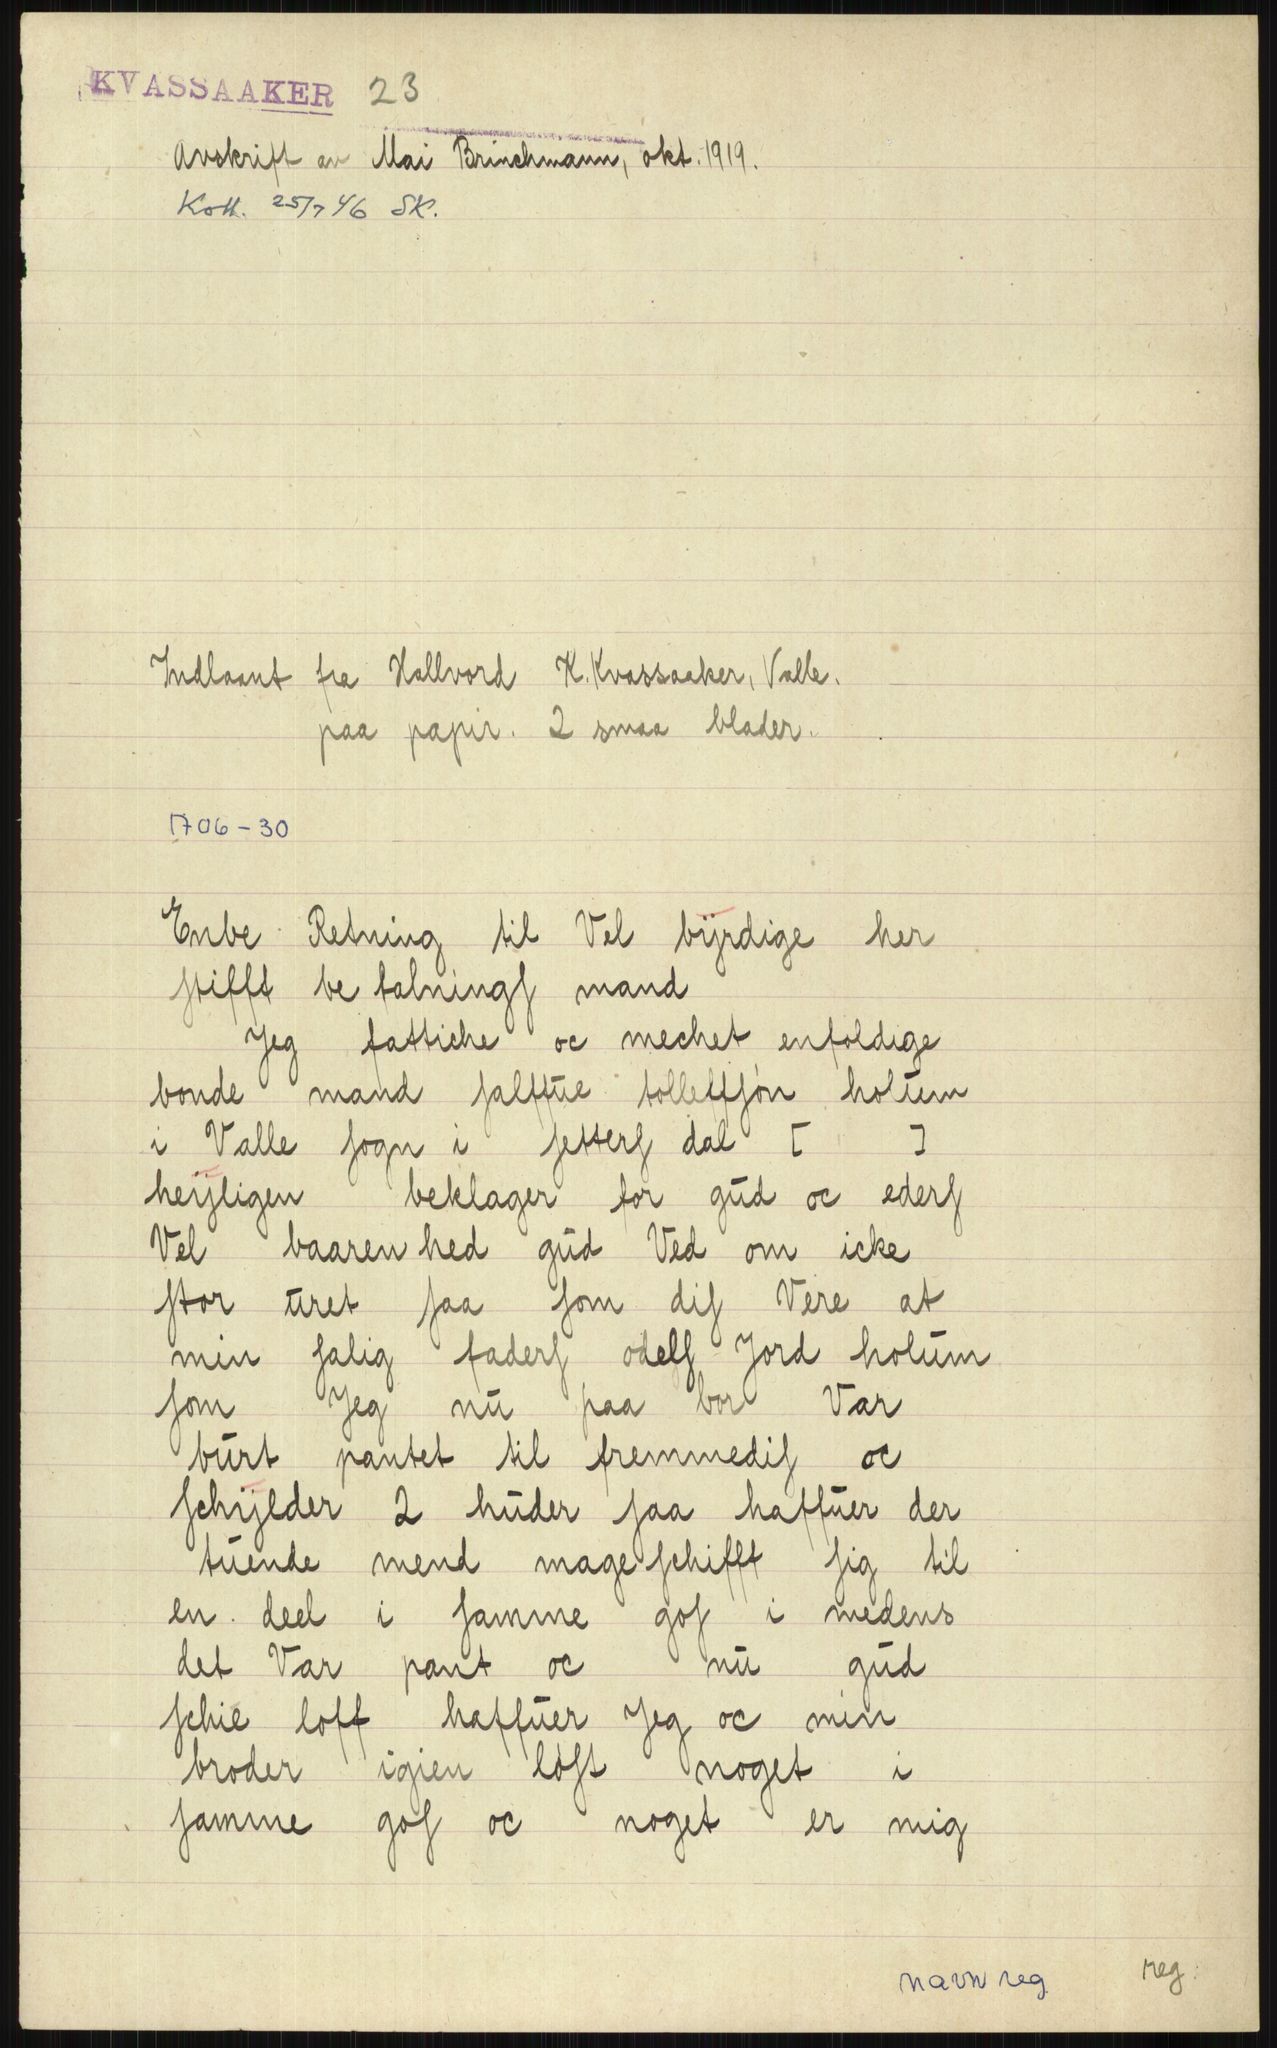 KVASSAAKER 23
Avskrift av Mai Brinchmann, okt. 1919.
Koll. 25/7 46 SK.
Indlaant fra Hallvord K. Kvassaaker, Valle.
paa papir. 2 smaa blader.
1706-30
Enbe Retning til Vel bÿrdige her
stifft be falnings mand
Jeg fattiche oc mechet enfoldige
bonde mand salffue tolleffsøn holum
i Valle sogn i setters dal [ ]
heÿligen beklager for gud oc eders
Vel baaren hed gud Ved om icke
stor uret saa som dis Vere at
min salig faders odels Jord holum
som Jeg nu paa bor Var
burt pantet til fremmedis oc
schÿlder 2 huder saa haffuer der
tuende mend mage schifft sig til
en deel i samme gos i medens
det Var pant oc nu gud
schie loff haffuer Jeg oc min
broder igien løst noget i
samme gos oc noget er mig
navn reg
reg.